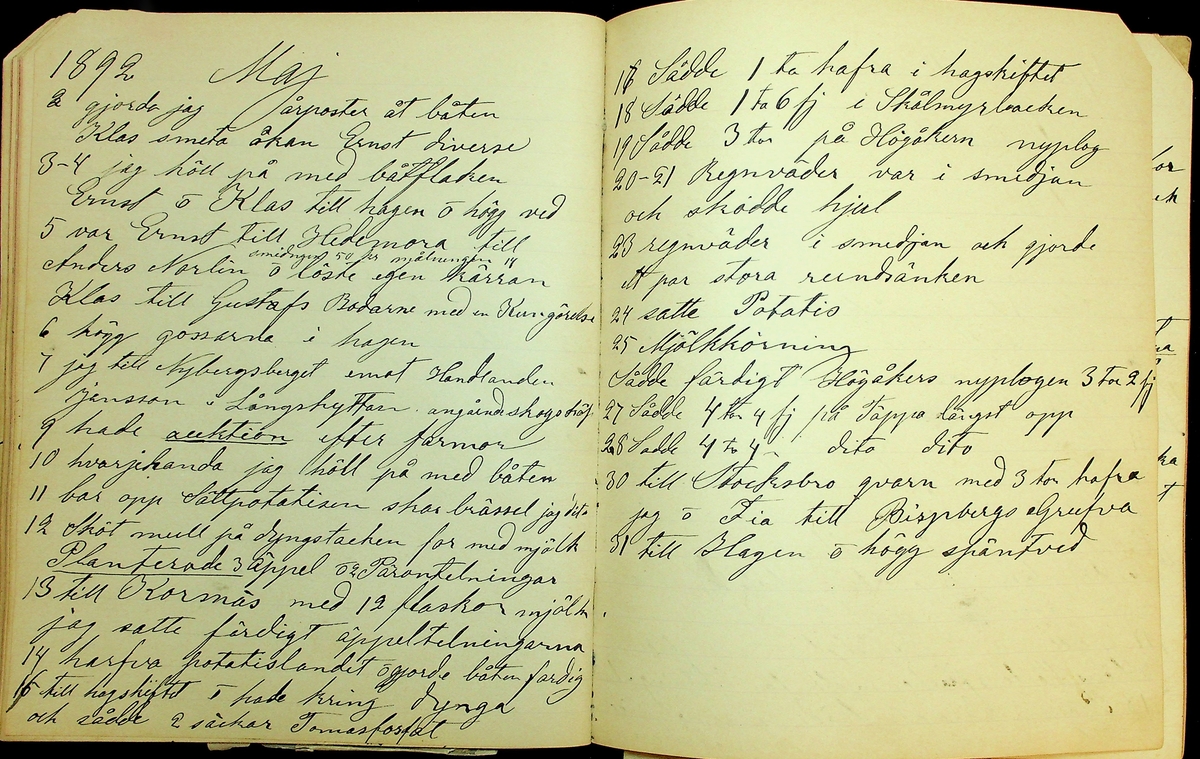 1892 Maj
2 gjorde jag årposter åt båten
Klas smeta åkan Ernst diverse
3-4 jag höll på med båtflaken
Ernst o Klas till hagen o högg ved
5 var Ernst till Hedemora till
smidning 50 för mjölningen 14
Anders Norlin o löste egen kärran
Klas till Gustafs Bodarne med en Kungörelse
6 högg gossarna i hagen
7 jag till Nybergsberget emot Handlanden
Jansson i Långshyttan angånd skogsköp
9 hade auktion efter farmor
10 hvarjehanda jag höll på med båten
11 bar opp Sättpotatisen skar brässel jag dito
12 Sköt mull på dyngstacken for med mjölk
Planterade 3 äppel o 2 Parontelningar
13 till Kormäs med 12 flaskor mjölk
jag satte färdigt äppeltelningarna
14 harfva potatislandet o gjorde båten färdig
15 till hagskiftet o hade kring dynga
och sådde 2 säckar Tomasfosfat
16 Sådde 1 ta hafra i hagskiftet
18 Sådde 1 ta 6 fj i Skålmyrbacken
19 Sådde 3 tor på Högåkern nyplog
20-21 Regnväder var i smedjan
och skodde hjul
23 regnväder i smedjan och gjorde
ett par stora reundsänken
24 satte Potatis
25 Mjölkkörning
Sådde färdigt Högåkers nyplogen 3 tor 2 fj
27 Sådde 4 tor 4 fj på Täppa längst opp
28 Sådde 4 to 4 dito dito
30 till Stocksbro qvarn med 3 tor hafra
jag o Fia till Bispbergs Grufva
31 till Hagen o högg späntved